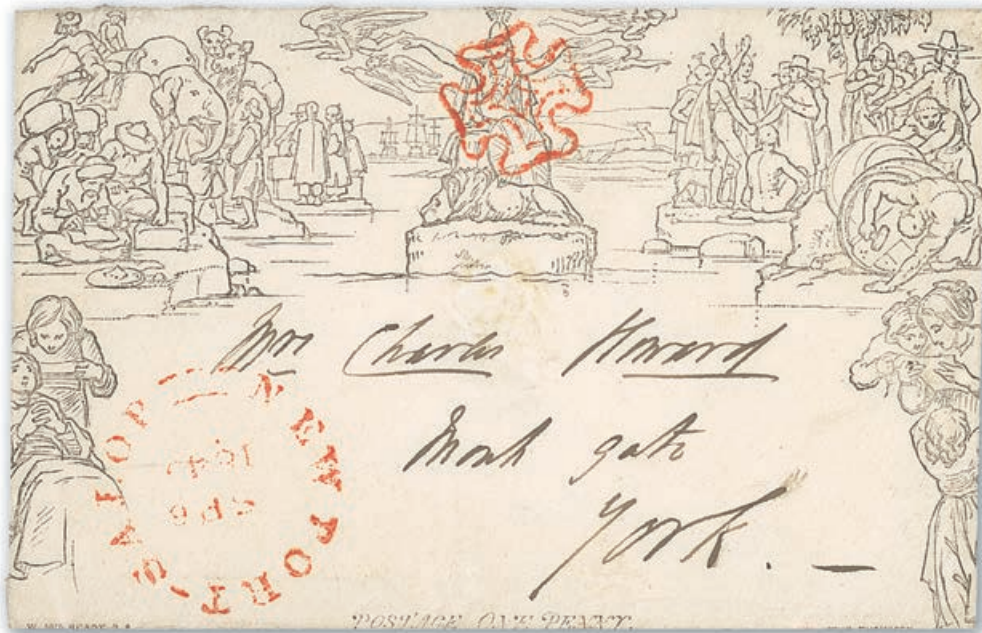 Mrs Charles Howard
Monk gate
York. —
NEWPORT-SALOP
SP 6
1840
POSTAGE ONE PENNY.